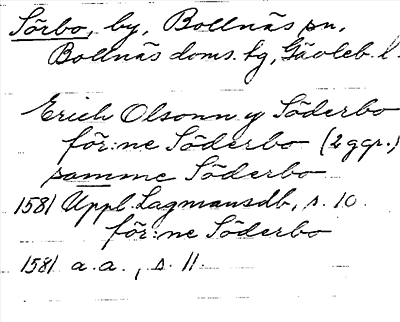 Sörbo, by, Bollnäs sn,
Bollnäs doms. tg, Gävleb. l.
Erich Olsonn y Söderbo
för:ne Söderbo (2 ggr.)
samme Söderbo
1581 Uppl. Lagmansdb, s. 10.
för:ne Söderbo
1581 a.a., s. 11.